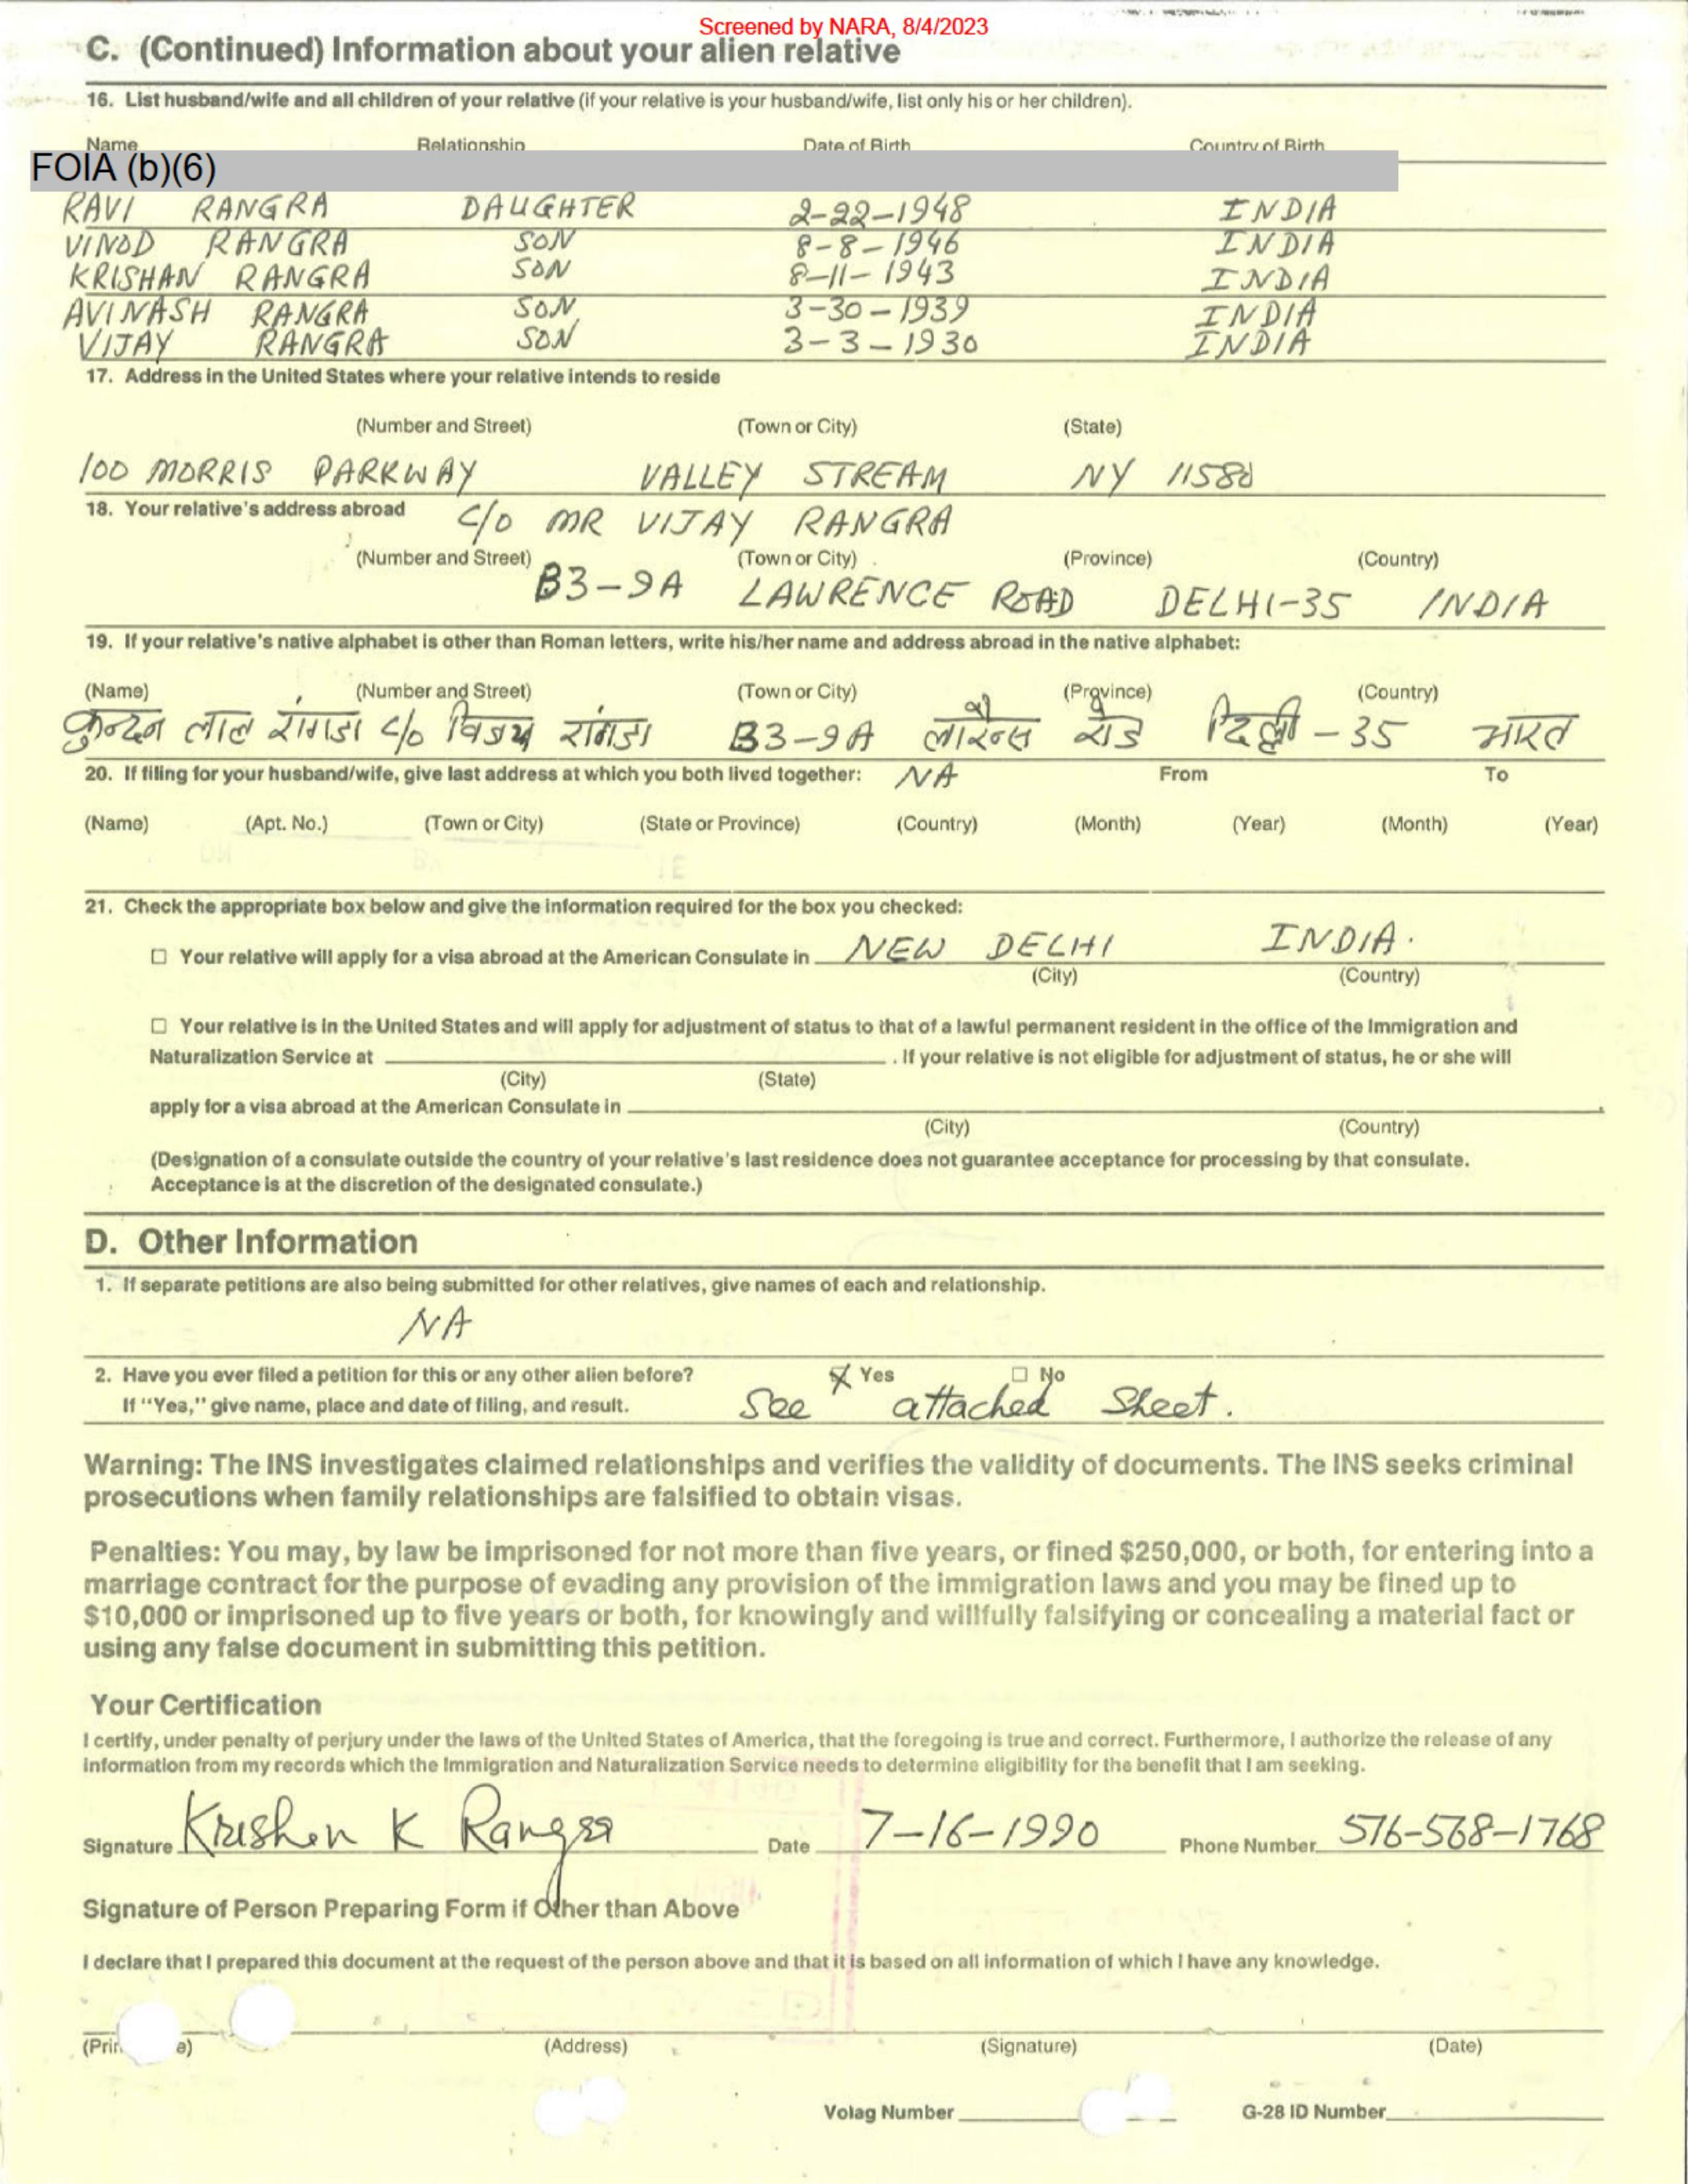 Screened by NARA, 8/4/2023
C. (Continued) Information about your alien relative
16. List husband/wife and all children of your relative (if your relative is your husband/wife, list only his or her children).
Name Relationship Date of Birth Country of Birth
FOIA (b)(6)
RAVI RANGRA DAUGHTER 2-22-1948 INDIA
VINOD RANGRA SON 8-8-1946 INDIA
KRISHAN RANGRA SON 8-11-1943 INDIA
AVINASH RANGRA SON 3-30-1939 INDIA
VIJAY RANGRA SON 3-3-1930 INDIA
17. Address in the United States where your relative intends to reside
(Number and Street) (Town or City) (State)
100 MORRIS PARKWAY VALLEY STREAM NY 11580
18. Your relative's address abroad C/O MR VIJAY RANGRA
(Number and Street) (Town or City) (Province) (Country)
B3-9A LAWRENCE ROAD DELHI-35 INDIA
19. If your relative's native alphabet is other than Roman letters, write his/her name and address abroad in the native alphabet:
(Name) (Number and Street) (Town or City) (Province) (Country)
कुन्दन लाल रांगडा c/o विजय रांगडा B3-9A लारेन्स रोड दिल्ली -35 भारत
20. If filing for your husband/wife, give last address at which you both lived together: NA From To
(Name) (Apt. No.) (Town or City) (State or Province) (Country) (Month) (Year) (Month) (Year)
21. Check the appropriate box below and give the information required for the box you checked:
☐ Your relative will apply for a visa abroad at the American Consulate in NEW DELHI INDIA.
(City) (Country)
☐ Your relative is in the United States and will apply for adjustment of status to that of a lawful permanent resident in the office of the Immigration and
Naturalization Service at ____ . If your relative is not eligible for adjustment of status, he or she will
(City) (State)
apply for a visa abroad at the American Consulate in ____.
(City) (Country)
(Designation of a consulate outside the country of your relative's last residence does not guarantee acceptance for processing by that consulate.
Acceptance is at the discretion of the designated consulate.)
D. Other Information
1. If separate petitions are also being submitted for other relatives, give names of each and relationship.
NA
2. Have you ever filed a petition for this or any other alien before? ☒ Yes ☐ No
If "Yes," give name, place and date of filing, and result. See attached Sheet.
Warning: The INS investigates claimed relationships and verifies the validity of documents. The INS seeks criminal
prosecutions when family relationships are falsified to obtain visas.
Penalties: You may, by law be imprisoned for not more than five years, or fined $250,000, or both, for entering into a
marriage contract for the purpose of evading any provision of the immigration laws and you may be fined up to
$10,000 or imprisoned up to five years or both, for knowingly and willfully falsifying or concealing a material fact or
using any false document in submitting this petition.
Your Certification
I certify, under penalty of perjury under the laws of the United States of America, that the foregoing is true and correct. Furthermore, I authorize the release of any
information from my records which the Immigration and Naturalization Service needs to determine eligibility for the benefit that I am seeking.
Signature Krishen K Rangra Date 7-16-1990 Phone Number 516-568-1768
Signature of Person Preparing Form if Other than Above
I declare that I prepared this document at the request of the person above and that it is based on all information of which I have any knowledge.
(Address) (Signature) (Date)
Volag Number G-28 ID Number